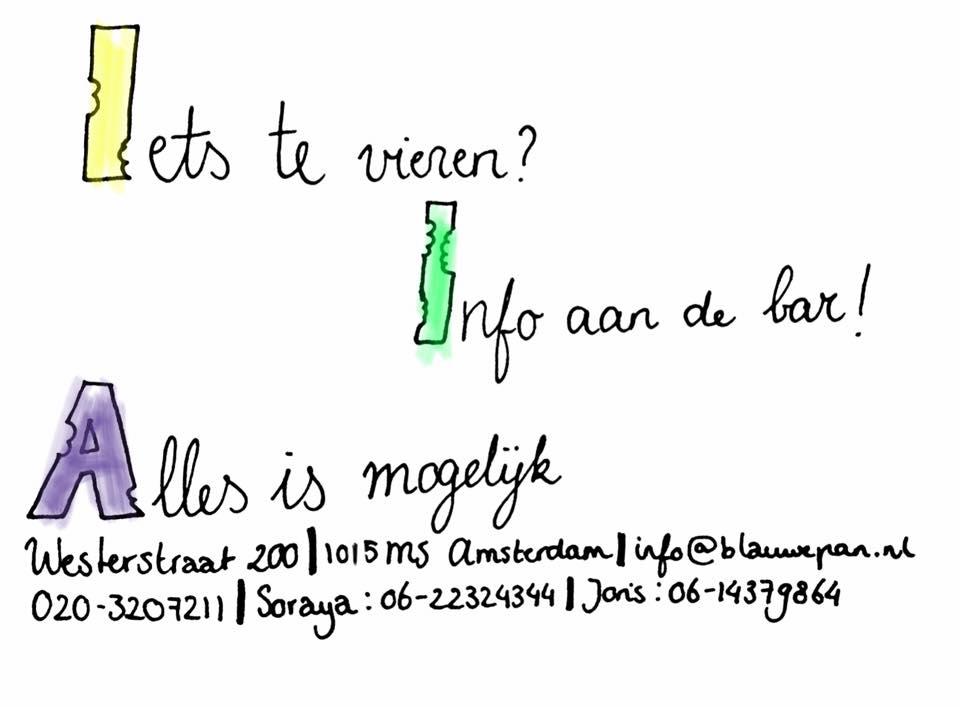 Iets te vieren?
Info aan de bar!
Alles is mogelijk
Westerstraat 200 | 1015 MS Amsterdam | info@blauwepan.nl
020-3207211 | Soraya: 06-22324344 | Joris: 06-14379864